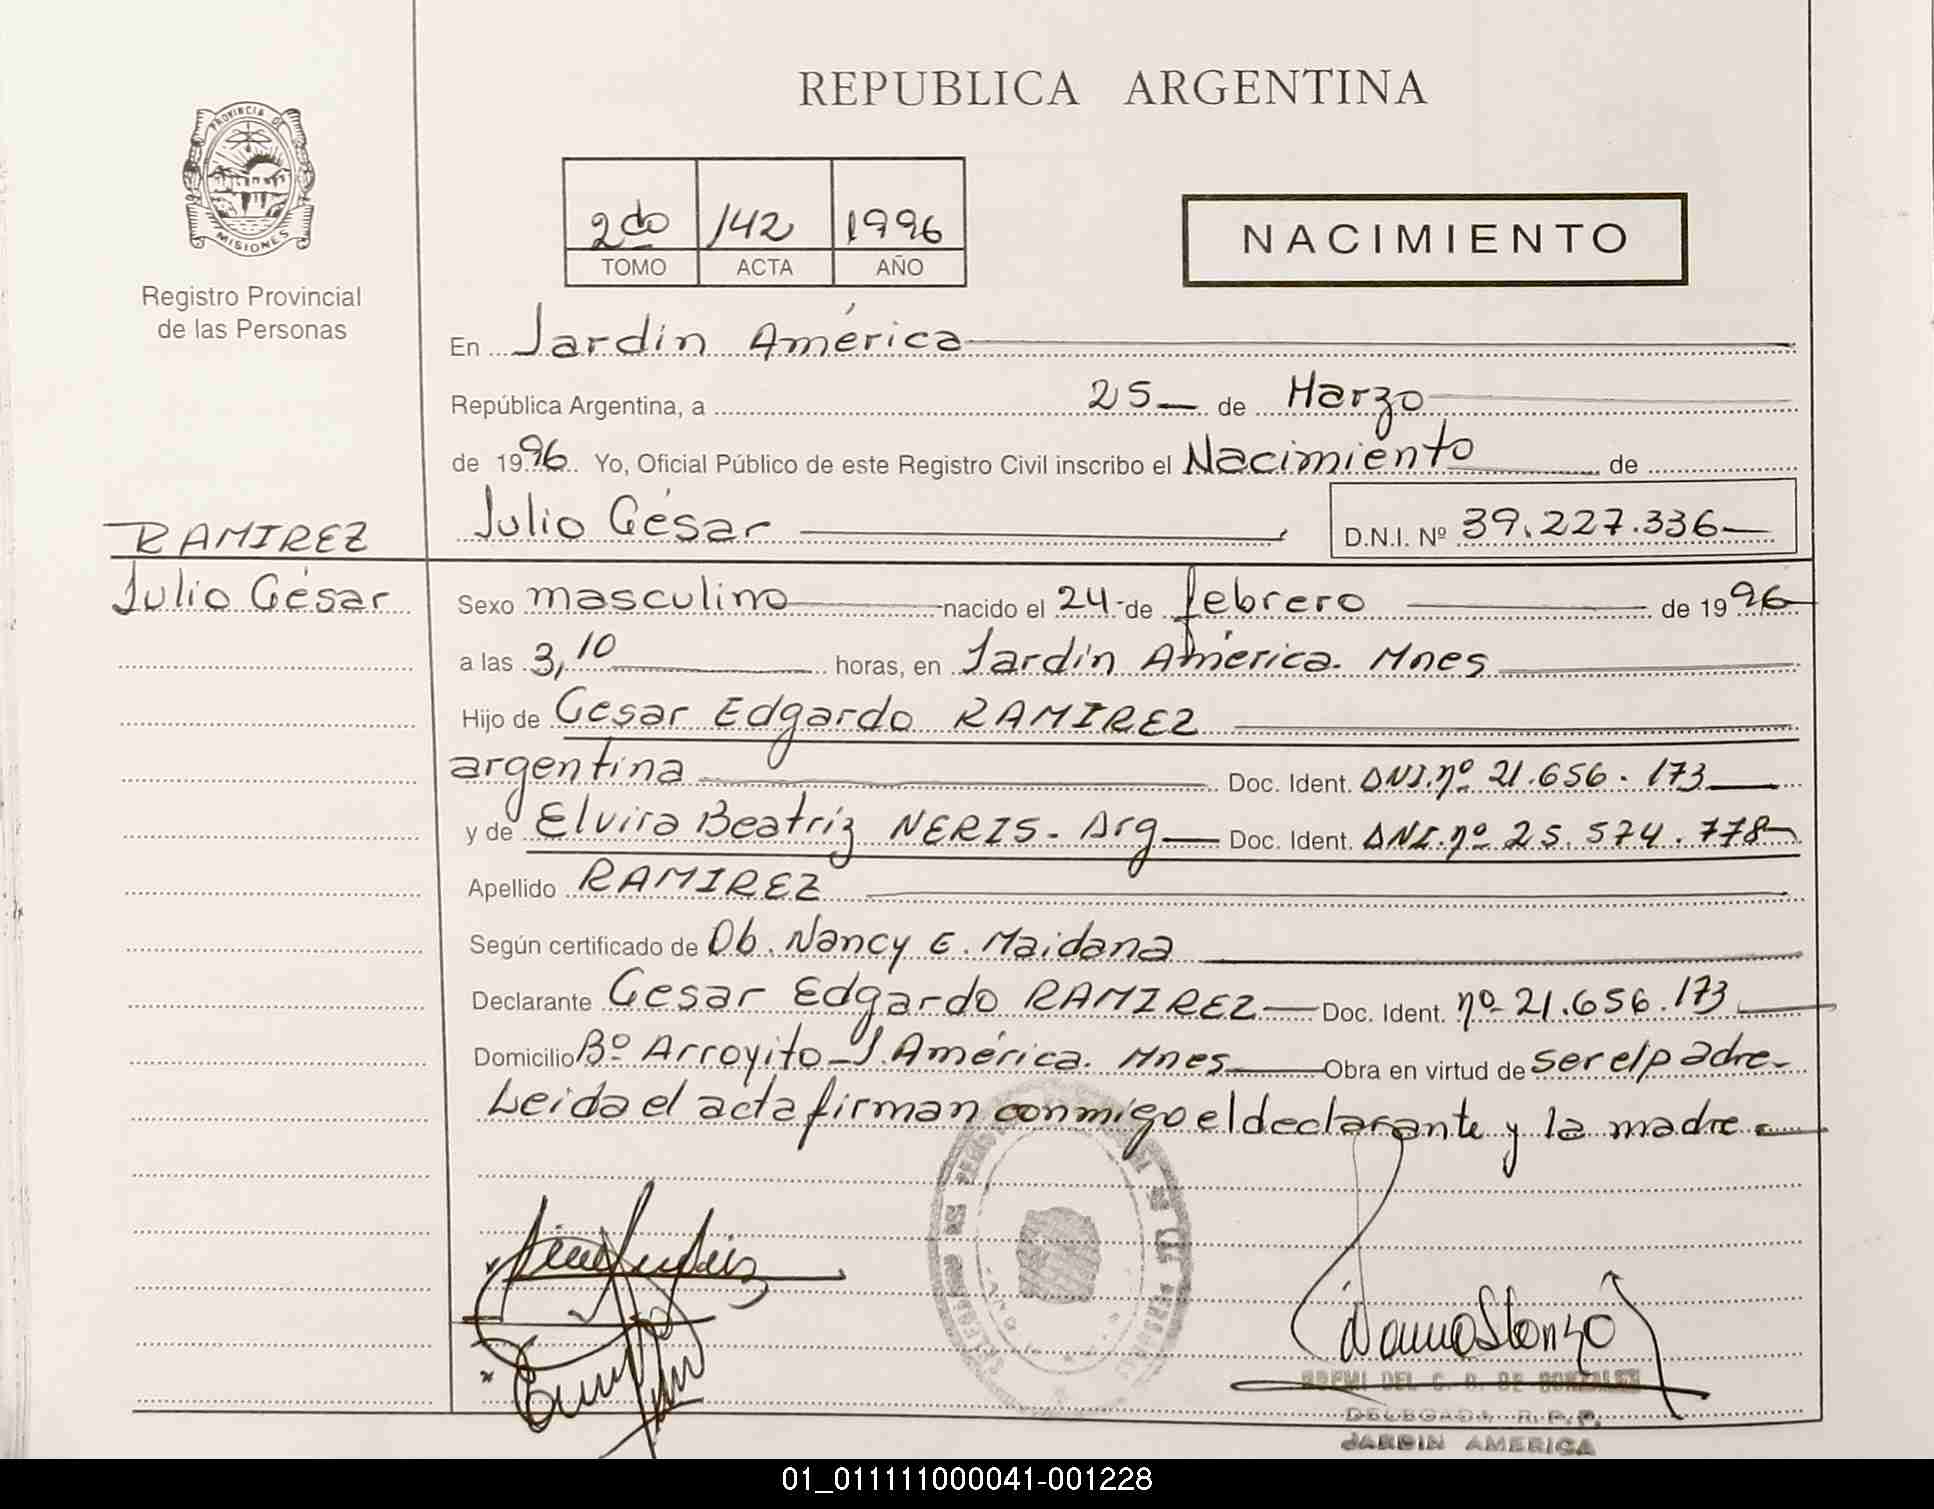 REPUBLICA ARGENTINA
PROVINCIA DE
MISIONES
Registro Provincial
de las Personas
2do 142 1996
TOMO ACTA AÑO
NACIMIENTO
En Jardín América
República Argentina, a 25 de Marzo
de 1996 Yo, Oficial Público de este Registro Civil inscribo el Nacimiento de
RAMIREZ
Julio César
Julio César D.N.I. Nº 39.227.336
Sexo masculino nacido el 24 de febrero de 1996
a las 3,10 horas, en Jardín América. Mnes
Hijo de Cesar Edgardo RAMIREZ
argentina Doc. Ident. DNI.nº 21.656.173
y de Elvira Beatriz NERIS - Arg Doc. Ident. DNI.nº 25.574.778
Apellido RAMIREZ
Según certificado de Ob. Nancy E. Maidana
Declarante Cesar Edgardo RAMIREZ Doc. Ident. nº 21.656.173
Domicilio Bº Arroyito - J. América. Mnes Obra en virtud de ser el padre
Leida el acta firman conmigo el declarante y la madre
DELEGADA R.P.P.
JARDIN AMERICA
01_011111000041-001228